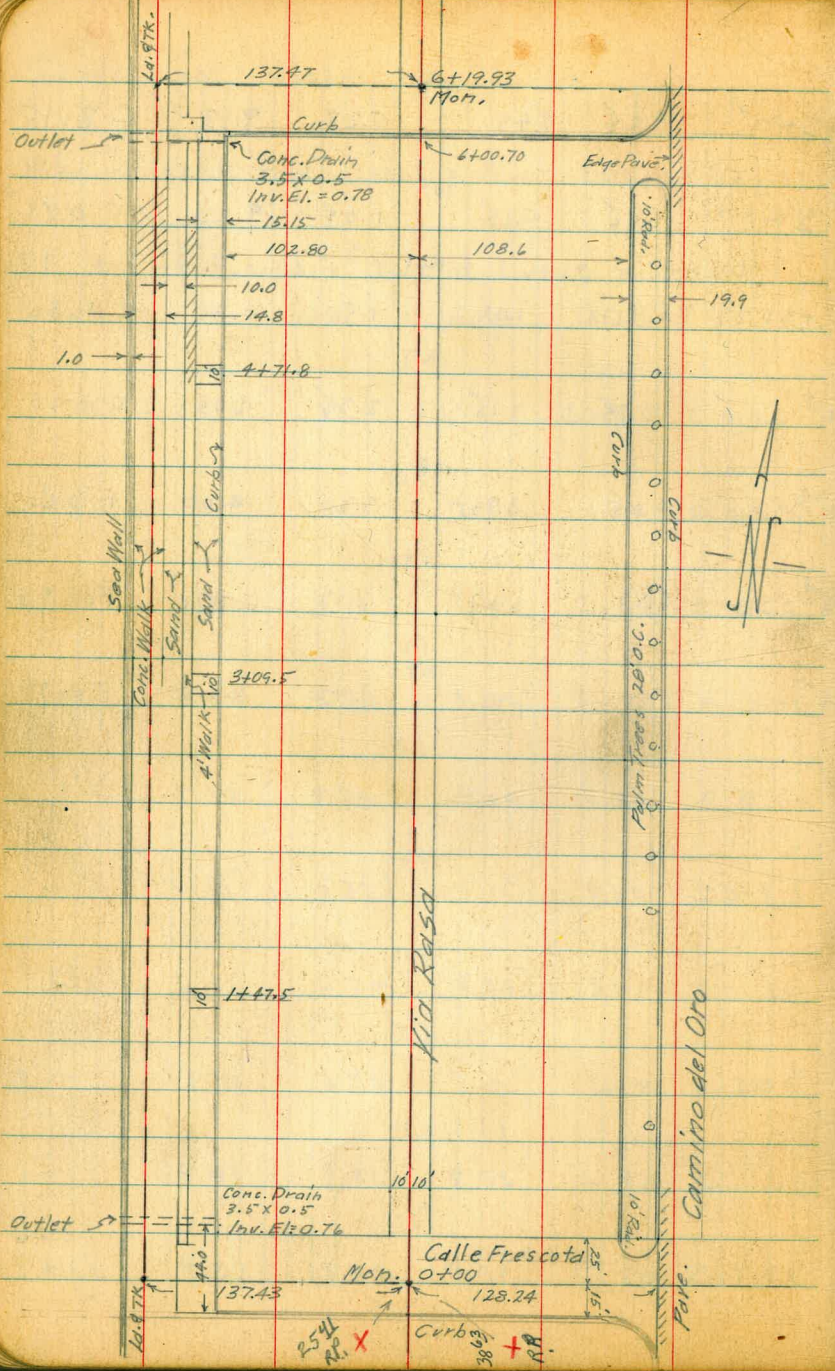 Ld. & TK.
137.47
6+19.93
Mon.
Outlet
Curb
Conc. Drain
3.5 x 0.5
Inv. El. = 0.78
6+00.70
Edge Pave.
10' Rad.
15.15
102.80
108.6
10.0
14.8
19.9
1.0
10'
4+71.8
Curb
Curb
Curb
Sea Wall
Conc. Walk
Sand
Sand
N
10'
3+09.5
4' Walk
Palm Trees 28' O.C.
Via Rasa
10'
1+47.5
Camino del Oro
10' 10'
Conc. Drain
3.5 x 0.5
Inv. El = 0.76
Outlet
10' Rad.
44.0
Calle Frescota
25'
15'
Mon. 0+00
137.43
128.24
Ld. & TK
Pave.
Curb
2541
R.P. X
3863
+ R.P.